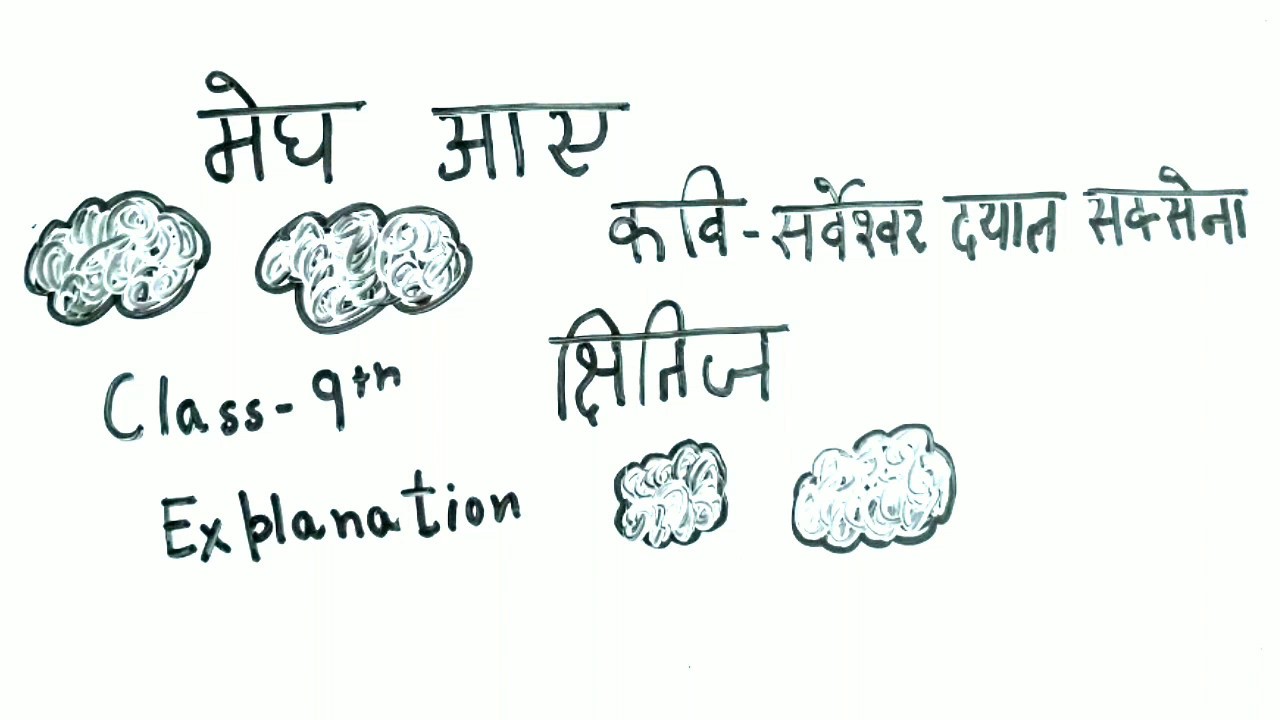 मेघ आए
कवि - सर्वेश्वर दयाल सक्सेना
क्षितिज
Class - 9th
Explanation